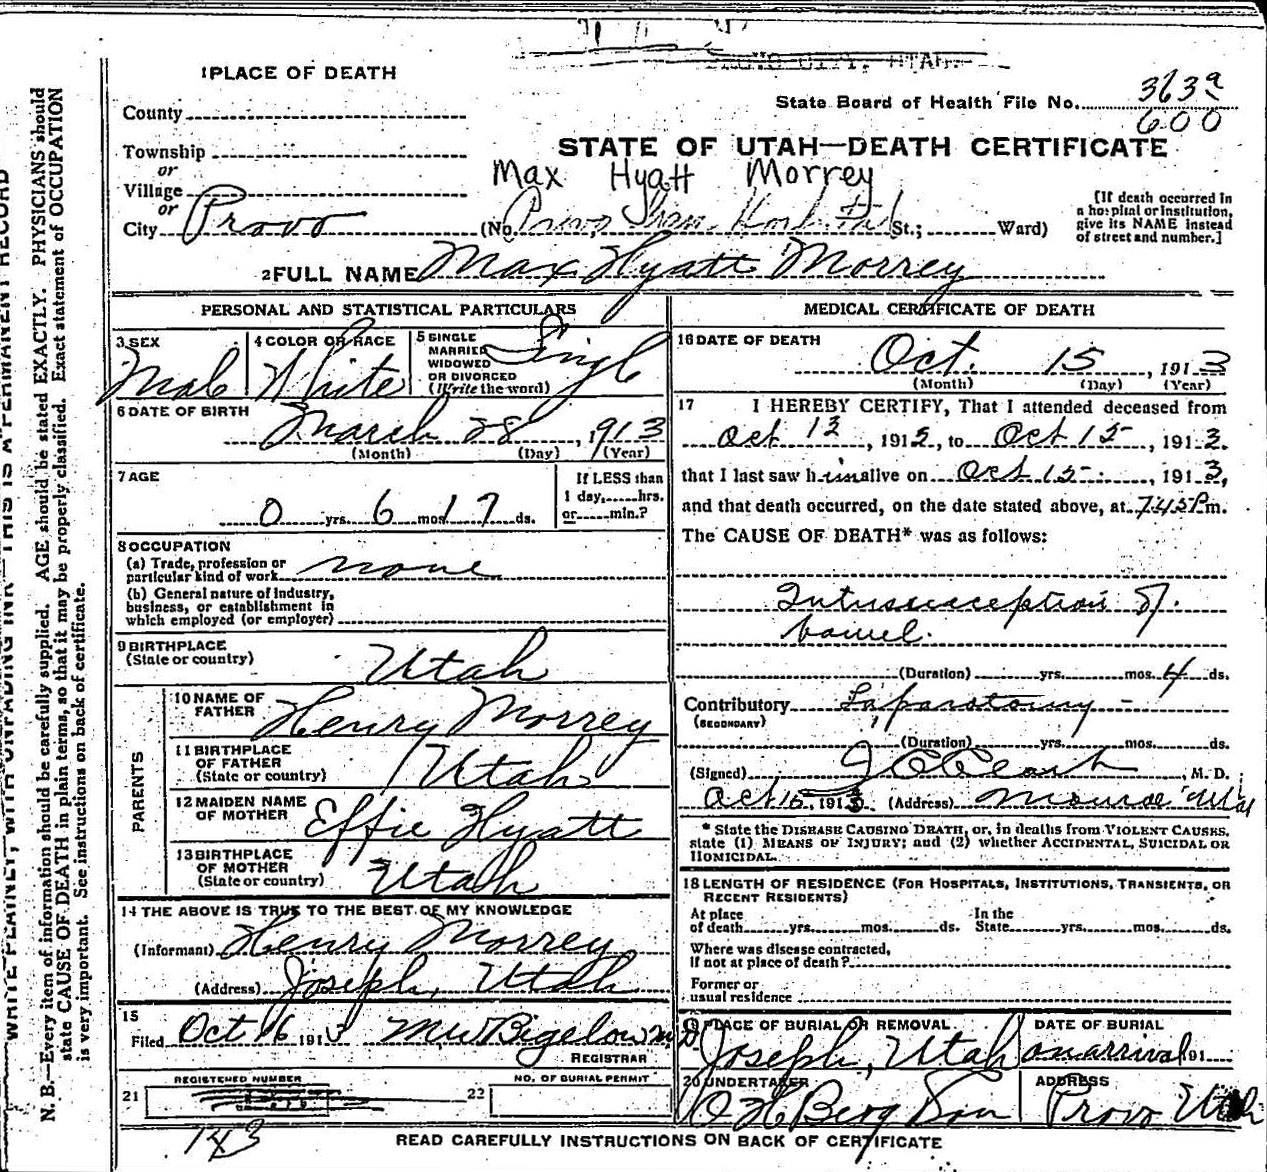 1 PLACE OF DEATH
State Board of Health File No. 363a
600
County
STATE OF UTAH—DEATH CERTIFICATE
Township
or
Max Hyatt Morrey
Village
or
City Provo (No. Provo Gen. Hospital St.; Ward)
[If death occurred in
a hospital or institution,
give its NAME instead
of street and number.]
2 FULL NAME Max Hyatt Morrey
PERSONAL AND STATISTICAL PARTICULARS
3 SEX
Male
4 COLOR OR RACE
White
5 SINGLE
MARRIED
WIDOWED
OR DIVORCED
(Write the word)
Single
6 DATE OF BIRTH
March 28, 1913
(Month) (Day) (Year)
7 AGE
0 yrs. 6 mos. 17 ds.
If LESS than
1 day, hrs.
or min.?
8 OCCUPATION
(a) Trade, profession or
particular kind of work none
(b) General nature of industry,
business, or establishment in
which employed (or employer)
9 BIRTHPLACE
(State or country) Utah
PARENTS
10 NAME OF
FATHER Henry Morrey
11 BIRTHPLACE
OF FATHER
(State or country) Utah
12 MAIDEN NAME
OF MOTHER Effie Hyatt
13 BIRTHPLACE
OF MOTHER
(State or country) Utah
14 THE ABOVE IS TRUE TO THE BEST OF MY KNOWLEDGE
(Informant) Henry Morrey
(Address) Joseph, Utah
15
Filed Oct 16 1913 M W Bigelow M.D.
REGISTRAR
21 REGISTERED NUMBER
22 NO. OF BURIAL PERMIT
143
MEDICAL CERTIFICATE OF DEATH
16 DATE OF DEATH
Oct. 15, 1913
(Month) (Day) (Year)
17 I HEREBY CERTIFY, That I attended deceased from
Oct 13, 1913, to Oct 15, 1913.
that I last saw him alive on Oct 15, 1913,
and that death occurred, on the date stated above, at 7.45 P m.
The CAUSE OF DEATH* was as follows:
Intussusception of
bowel.
(Duration) yrs. mos. 4 ds.
Contributory Laparotomy
(SECONDARY)
(Duration) yrs. mos. ds.
(Signed) , M. D.
Oct 15, 1913. (Address) Monroe Utah
* State the DISEASE CAUSING DEATH, or, in deaths from VIOLENT CAUSES,
state (1) MEANS OF INJURY; and (2) whether ACCIDENTAL, SUICIDAL OR
HOMICIDAL.
18 LENGTH OF RESIDENCE (FOR HOSPITALS, INSTITUTIONS, TRANSIENTS, OR
RECENT RESIDENTS)
At place
of death yrs. mos. ds.
In the
State yrs. mos. ds.
Where was disease contracted,
if not at place of death?
Former or
usual residence
19 PLACE OF BURIAL OR REMOVAL
Joseph, Utah
DATE OF BURIAL
on arrival 191
20 UNDERTAKER
O H Berg Son
ADDRESS
Provo Utah
READ CAREFULLY INSTRUCTIONS ON BACK OF CERTIFICATE
WRITE PLAINLY, WITH UNFADING INK—THIS IS A PERMANENT RECORD
N. B.—Every item of information should be carefully supplied. AGE should be stated EXACTLY. PHYSICIANS should
state CAUSE OF DEATH in plain terms, so that it may be properly classified. Exact statement of OCCUPATION
is very important. See instructions on back of certificate.